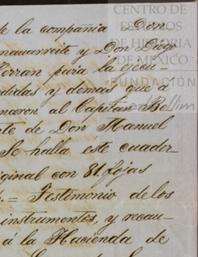 de la compañía Don
y Don Die
Terran para la
didas y demas que á
maron al Capitan Be
to de Don Manuel
Se halla este cuader
iginal con 81 fojas
= Testimonio de los
instrumentos, y recau
á la Hacienda de
CENTRO DE
ESTUDIOS
DE HISTORIA
DE MÉXICO
FUNDACIÓN